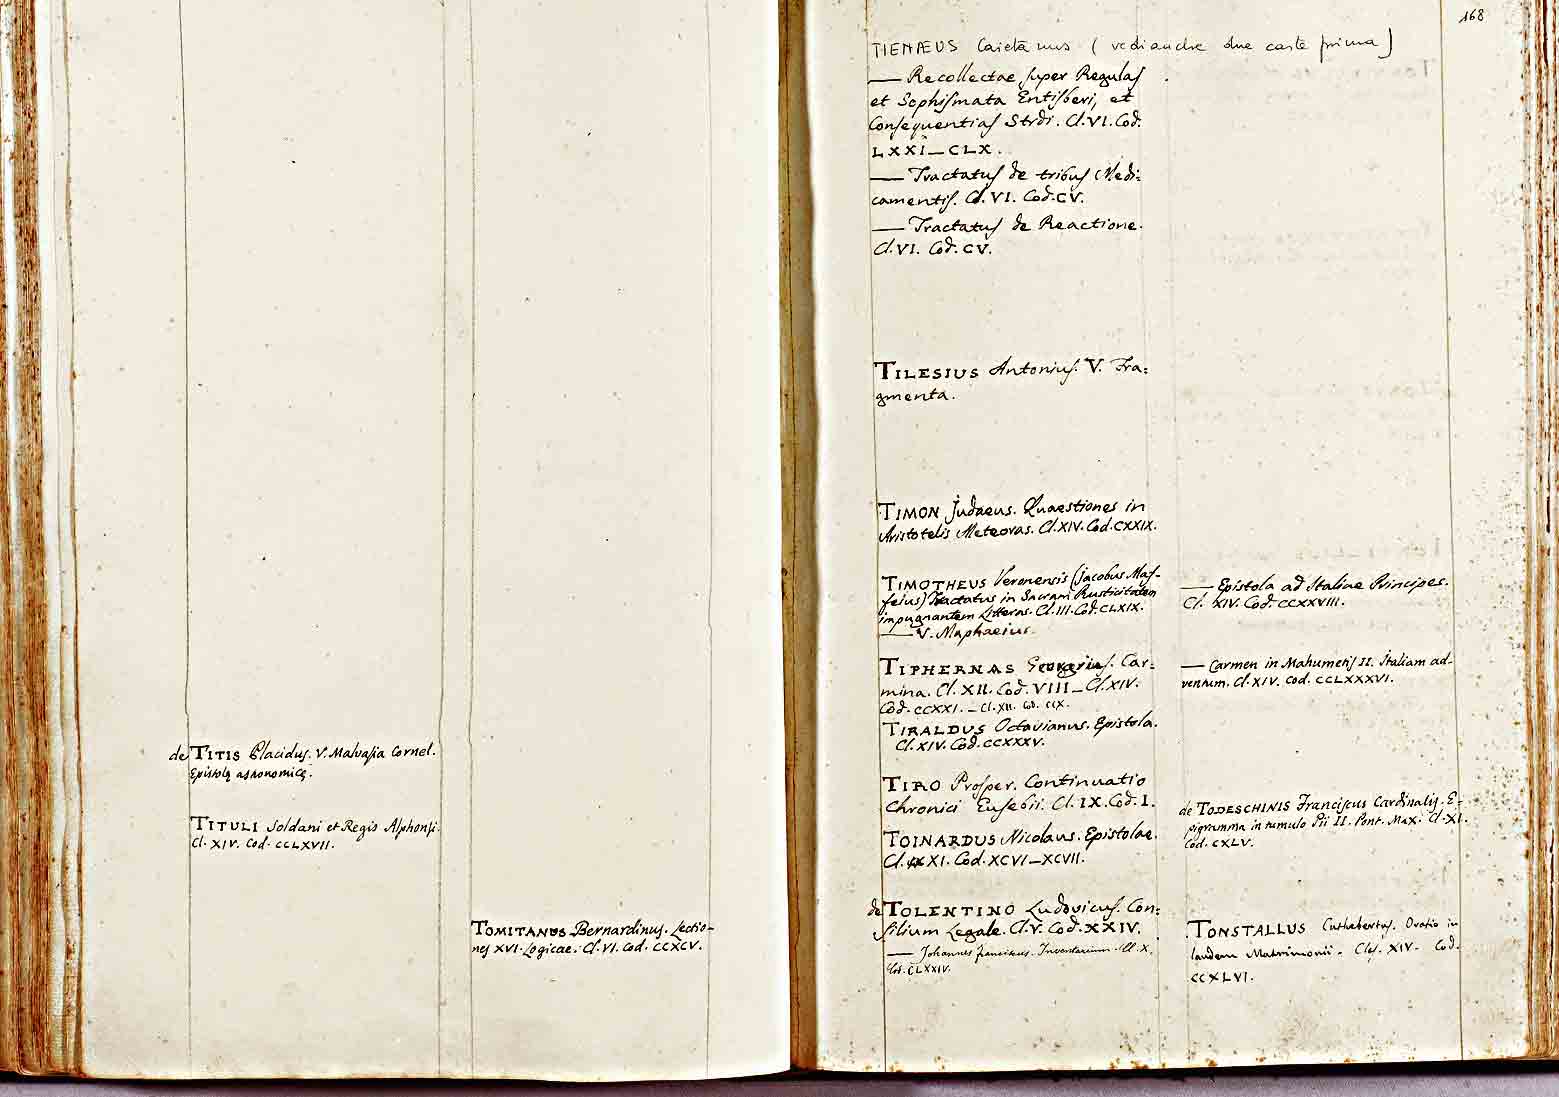 de TITIS Placidus. V. Malvasia Cornel.
Epistolę astronomicę.
TITULI Soldani et Regis Alphonsi.
Cl. XIV. Cod. CCLXVII.
TOMITANUS Bernardinus. Lectio-
nes XVI. Logicae. Cl. VI. Cod. CCXCV.
168
TIENÆUS Caietanus (vedi anche due carte prima)
— Recollectae super Regulas
et Sophismata Entisberi, et
Consequentias Strdi. Cl. VI. Cod.
LXXI — CLX.
— Tractatus de tribus Medi:
camentis. Cl. VI. Cod. CV.
— Tractatus de Reactione.
Cl. VI. Cod. CV.
TILESIUS Antonius. V. Fra:
gmenta.
TIMON Judaeus. Quaestiones in
Aristotelis Meteoras. Cl. XIV. Cod. CXXIX.
TIMOTHEUS Veronensis (Jacobus Maf-
feius) Tractatus in Sacram Rusticitatem
impugnantem Litteras. Cl. III. Cod. CLXIX.
— V. Maphaeius.
TIPHERNAS Gregorius. Car:
mina. Cl. XII. Cod. VIII — Cl. XIV.
Cod. CCXXI. — Cl. XII. Cod. CCX.
TIRALDUS Octavianus. Epistola.
Cl. XIV. Cod. CCXXXV.
TIRO Prosper. Continuatio
Chronici Eusebii. Cl. IX. Cod. I.
TOINARDUS Nicolaus. Epistolae.
Cl. XI. Cod. XCVI — XCVII.
de TOLENTINO Ludovicus. Con:
silium Legale. Cl. V. Cod. XXIV.
— Johannes Franciscus. Inventarium. Cl. X.
Cod. CLXXIV.
— Epistola ad Italiae Principes.
Cl. XIV. Cod. CCXXVIII.
— Carmen in Mahumetis II. Italiam ad-
ventum. Cl. XIV. Cod. CCLXXXVI.
de TODESCHINIS Franciscus Cardinalis. E-
pigramma in tumulo Pii II. Pont. Max. Cl. XI.
Cod. CXLV.
TONSTALLUS Cuthebertus. Oratio in
laudem Matrimonii. Cls. XIV. Cod.
CCXLVI.